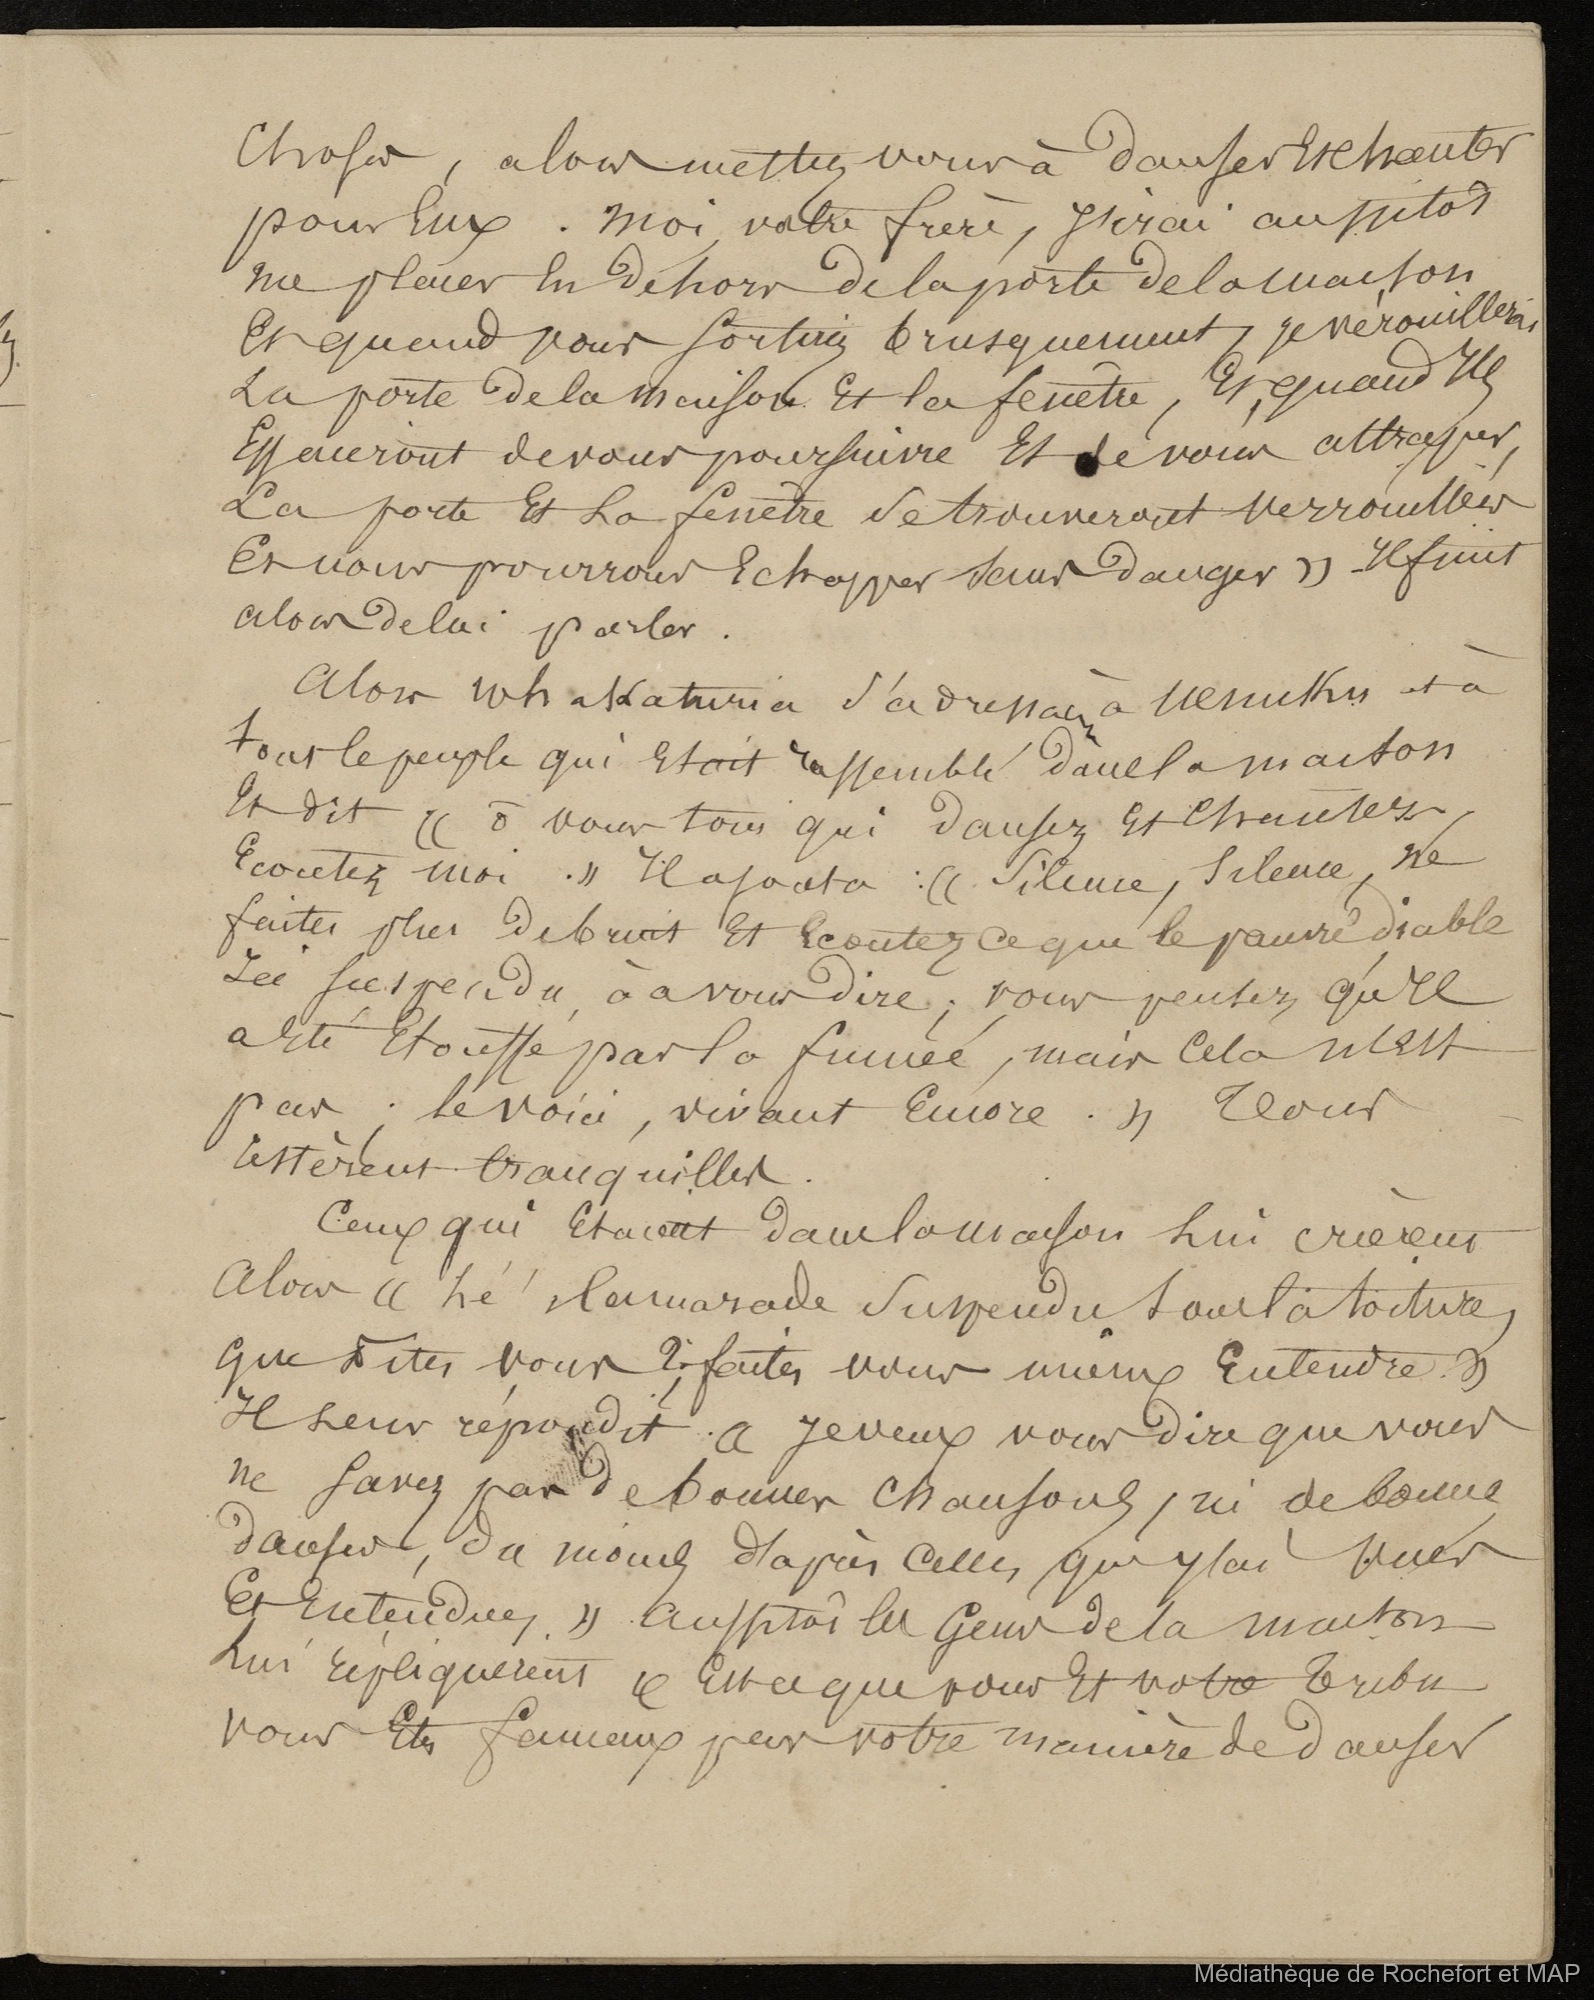 choses, alors mettez vous à danser et chanter
pour Eux. Moi, votre frère, J'irai aussitôt
me placer En dehors de la porte de la maison
Et quand vous sortirez brusquement, je vérouillerai
La porte de la maison Et la fenêtre, Et, quand Ils
Essaieront de vous poursuivre Et de vous attraper,
La porte Et La fenêtre se trouveront verrouillées
Et nous pourrons Echapper sans danger » Il finit
alors de lui parler.
Alors Whakaturia s'adressa à Uenuku et à
tout le peuple qui Etait rassemblé dans la maison
Et dit « ô vous tous qui dansez Et chantez,
Ecoutez moi. » Il ajouta : « Silence, silence, ne
faites plus de bruit Et Ecoutez ce que le pauvre diable
Ici suspendu, à à vous dire ; vous pensez qu'Il
a Eté Etouffé par la fumée, mais cela n'Est
pas ; le voici, vivant Encore. » Tous
restèrent tranquilles.
Ceux qui Etaient dans la maison Lui crièrent
alors « hé ! Camarade suspendu sous la toiture,
que dites vous ? faites vous mieux Entendre. »
Il Leur répondit « Je veux vous dire que vous
ne savez pas de bonnes chansons, ni de bonnes
danses, du moins d'après celles que j'ai vues
Et Entendues. » Aussitôt les gens de la maison
Lui répliquèrent « Est-ce que vous Et votre Tribu
vous Etes fameux par votre manière de danser
Médiathèque de Rochefort et MAP